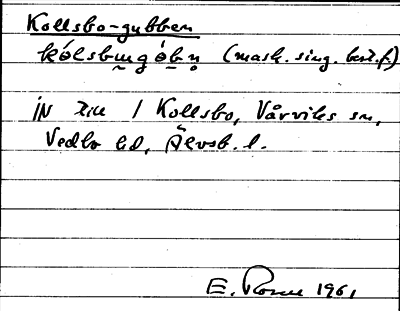 Kollsbo-gubben
kólsbųgóbn̥ (mask. sing. best. f.)
IN till 1 Kollsbo, Vårviks sn,
Vedbo hd, Älvsb. l.
E. 1961